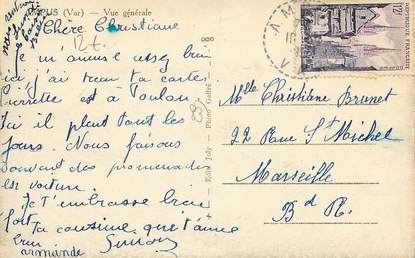 PUS (Var) — Vue générale
Chère Christiane
Je m'amuse assez bien
ici j'ai reçu ta carte
Pierrette est à Toulon
Ici il pleut tout les
jours. Nous faisons
souvent des promenades
en voiture.
Je t'embrasse bien
fort ta cousine que t'aime
bien
armande
Edit. Joly — Photo Gaffré
REPUBLIQUE FRANÇAISE
12f
Mlle Christiane Brunet
22 Rue St Michel
Marseille
B d R.